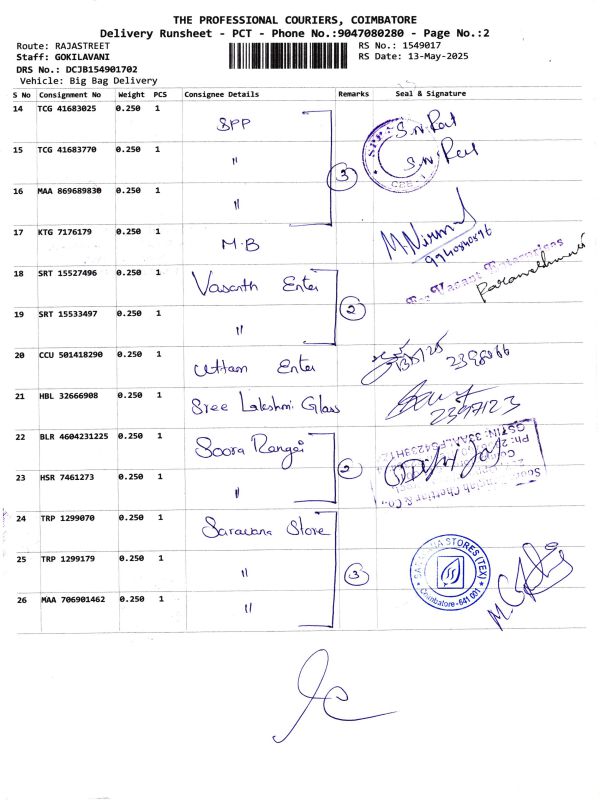 THE PROFESSIONAL COURIERS, COIMBATORE
Delivery Runsheet - PCT - Phone No.:9047080280 - Page No.:2
Route: RAJASTREET
RS No.: 1549017
Staff: GOKILAVANI
RS Date: 13-May-2025
DRS No.: DCJB154901702
Vehicle: Big Bag Delivery
S No Consignment No Weight PCS Consignee Details Remarks Seal & Signature
14 TCG 41683025 0.250 1 SPP S.N.
15 TCG 41683770 0.250 1 " 3 S.N.
16 MAA 869689830 0.250 1 "
17 KTG 7176179 0.250 1 M.B M.Nirmal
18 SRT 15527496 0.250 1 Vasanth Enter
19 SRT 15533497 0.250 1 " 2
20 CCU 501418290 0.250 1 Uttam Enter 2398066
21 HBL 32666908 0.250 1 Sree Lakshmi Glass 2397123
22 BLR 4604231225 0.250 1 Soora Rangai
23 HSR 7461273 0.250 1 " 2
24 TRP 1299070 0.250 1 Saravana Store
25 TRP 1299179 0.250 1 " 3 SARAVANA STORES (TEX) Coimbatore-641 001
26 MAA 706901462 0.250 1 "